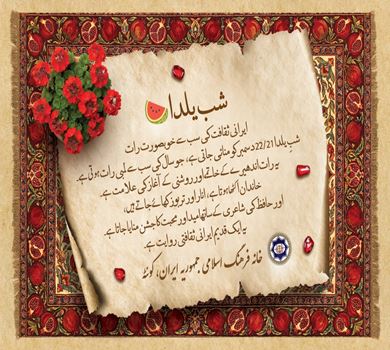 شبِ یلدا
ایرانی ثقافت کی سب سے خوبصورت رات
شبِ یلدا 22/21 دسمبر کو منائی جاتی ہے، جو سال کی سب سے لمبی رات ہوتی ہے۔
یہ رات اندھیرے کے خاتمے اور روشنی کے آغاز کی علامت ہے۔
خاندان اکٹھا ہوتا ہے، انار اور تربوز کھائے جاتے ہیں،
اور حافظ کی شاعری کے ساتھ امید اور محبت کا جشن منایا جاتا ہے۔
یہ ایک قدیم ایرانی ثقافتی روایت ہے۔
خانہ فرہنگ اسلامی جمہوریہ ایران، کوئٹہ